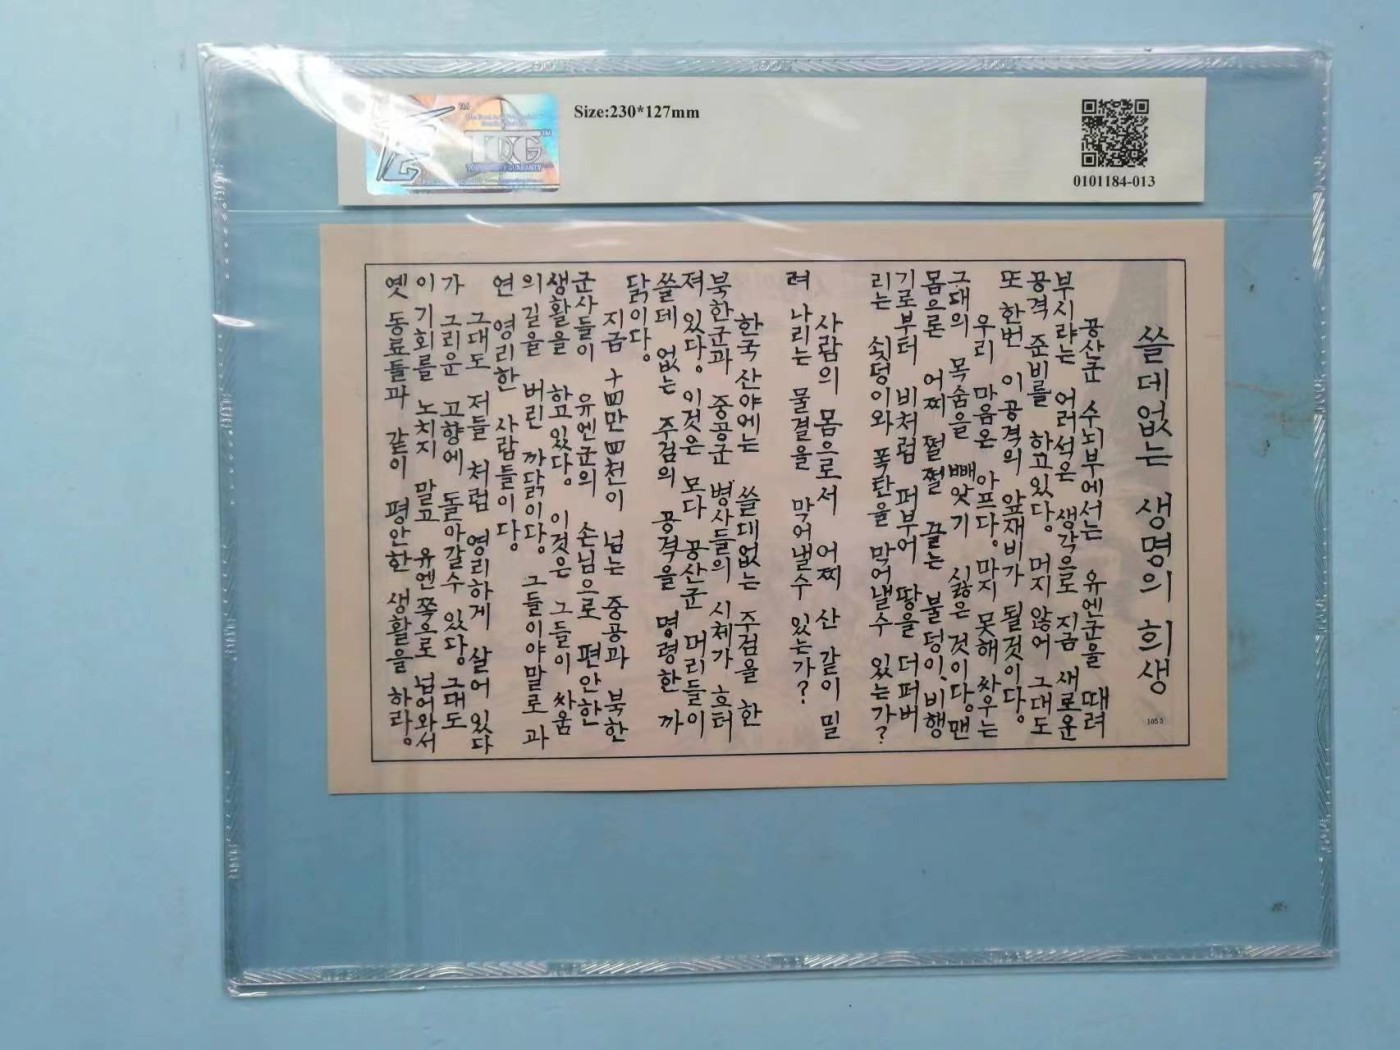 Size:230*127mm
0101184-013
쓸데없는 생명의 희생
공산군 수뇌부에서는 유엔군을 때려
부시랴는 어러석은 생각으로 지금 새로운
공격 준비를 하고있다. 머지 않어 그대도
또 한번 이공격의 앞재비가 될것이다.
우리 마음은 아프다. 마지 못해 싸우는
그대의 목숨을 빼앗기 싫은 것이다. 맨
몸으론 어찌 펄펄 끌는 불덩이、비행
기로부터 비처럼 퍼부어 땅을 더퍼버
리는 쇳덩이와 폭탄을 막어낼수 있는가?
사람의 몸으로서 어찌 산 같이 밀
려 나리는 물결을 막어낼수 있는가?
한국산야에는 쓸대없는 주검을 한
북한군과 중공군 병사들의 시체가 흐터
져 있다. 이것은 모다 공산군 머리들이
쓸데 없는 주검의 공격을 명령한 까
닭이다.
지금 十四만四천이 넘는 중공과 북한
군사들이 유엔군의 손님으로 편안한
생활을 하고있다. 이것은 그들이 싸움
의길을 버린 까닭이다. 그들이야말로 과
연 영리한 사람들이다
그대도 저들 처럼 영리하게 살어 있다
가 그리운 고향에 돌아갈수 있다. 그대도
이 기회를 노치지 말고 유엔쪽으로 넘어와서
옛 동료들과 같이 평안한 생활을 하라.
1055